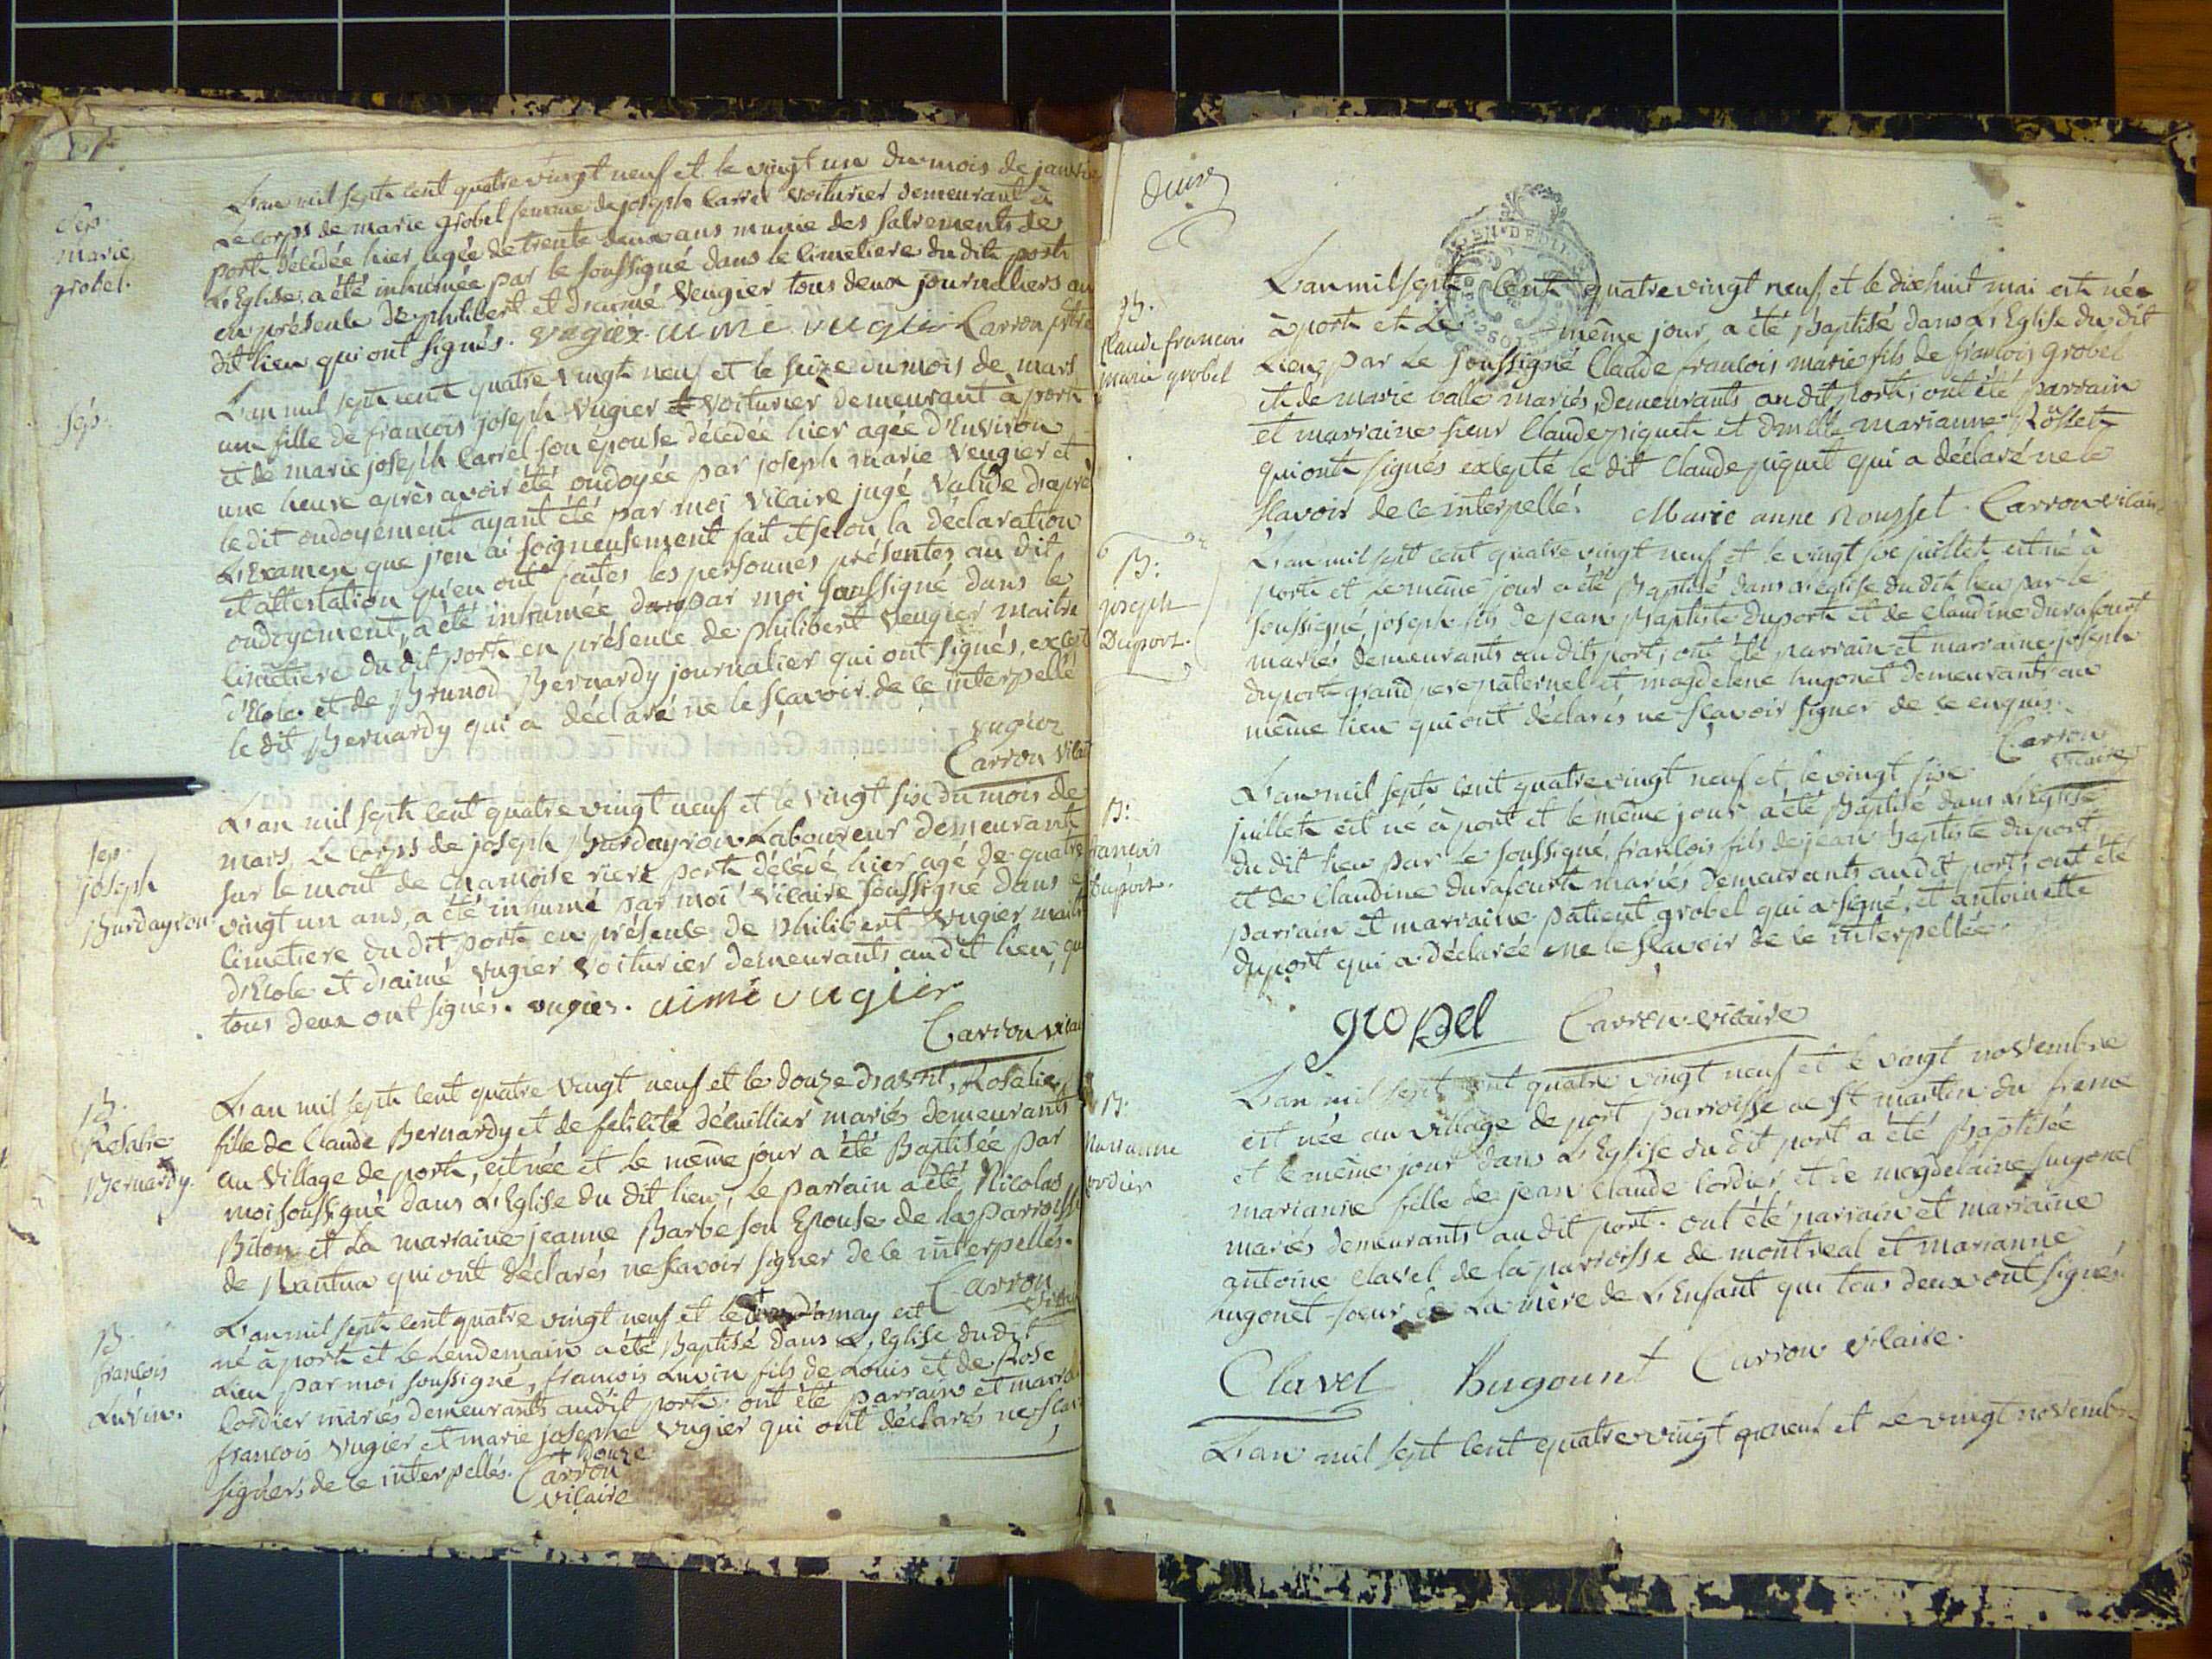 Sep.
marie
grobel.
L'an mil sept cent quatre vingt neuf et le vingt un du mois de janvie
Le corps de marie grobel femme de joseph Carrel voiturier demeurant à
port décédée hier agée de trente deux ans munie des sacrements de
L'Eglise, a été inhumée par le soussigné dans le cimetiere du dit port
en présence de philibert et d'aimé Vugier tous deux journalliers au
dit lieu qui ont signés. vugier aime vugier Carron ptre
Sép.
L'an mil sept cent quatre vingt neuf et le seize du mois de mars
une fille de francois joseph Vugier voiturier demeurant à port
et de marie joseph Carrel son épouse décédée hier agée d'Environ
une heure après avoir été ondoyée par joseph marie Vugier et
le dit ondoyement ayant été par moi Vicaire jugé valide d'aprè
L'Examen que j'en ai soigneusement fait et selon la déclaration
et attestation qu'en ont faites les personnes présentes au dit
ondoyement, a été inhumée par moi soussigné dans le
cimetiere du dit port en présence de philibert Vugier maitre
d'Ecole et de Brunod Bernardy journalier qui ont signés, except
le dit Bernardy qui a déclaré ne le sçavoir de ce interpellé
vugier
Carron vicai
Sep.
joseph
Burdayron
L'an mil sept cent quatre vingt neuf et le vingt six du mois de
mars, Le corps de joseph Burdayron Laboureur demeurant
sur le mont de chamoise riere port décédé hier agé de quatre
vingt un ans, a été inhumé par moi Vicaire soussigné dans
cimetiere du dit port en présence de philibert Vugier maitr
d'Ecole et d'aimé Vugier voiturier demeurants au dit lieu, qui
tous deux ont signés. vugier. aimé vugier
Carron vicai
B.
Rosalie
Bernardy.
L'an mil sept cent quatre vingt neuf et le douze d'avril, Rosalie
fille de Claude Bernardy et de felicité décuillier mariés demeurants
au Village de port, est née et le même jour a été Baptisée par
moi soussigné dans L'Eglise du dit lieu; Le parrain a été Nicolas
Biton et La marraine jeanne Barbe son Epouse de la parroisse
de Nantua qui ont déclarés ne sçavoir signer de ce interpellés.
Carron
B.
francois
Luvin.
L'an mil sept cent quatre vingt neuf et le may est
né à port et Le Lendemain a été Baptisé dans L'Eglise du dit
Lieu par moi soussigné, francois Luvin fils de Louis et de Rose
Cordier mariés demeurants au dit port: ont été parrain et marrai
francois Vugier et marie josephe Vugier qui ont déclarés ne sçav
signer, de ce interpellés. + douze
Carron
vicaire
deuxe
B.
Claude francois
marie grobel
L'an mil sept cent quatre vingt neuf et le dixhuit mai est né
à port et Le même jour a été Baptisé dans L'Eglise du dit
Lieu, par Le soussigné Claude francois marie fils de francois grobel
et de marie ballé mariés, demeurants au dit port; ont été parrain
et marraine sieur Claude piquet et dmlle marianne Rösset
qui ont signés excepté le dit Claude piquet qui a déclaré ne le
sçavoir de ce interpellé. Marie anne Rousset. Carron vicair
B:
joseph
Duport.
L'an mil sept cent quatre vingt neuf et le vingt six juillet est né à
port et Le même jour a été Baptisé dans L'église du dit lieu par le
soussigné joseph fils de jean Baptiste duport et de Claudine durafourt
mariés demeurants au dit port; ont été parrain et marraine joseph
duport grand pere paternel et magdelene hugonet demeurants au
même lieu qui ont déclarés ne sçavoir signer de ce enquis.
Carron
vicaire
B:
francois
duport.
L'an mil sept cent quatre vingt neuf et le vingt six
juillet est né à port et le même jour a été Baptisé dans L'Eglise
du dit lieu par Le soussigné, francois fils de jean Baptiste duport
et de Claudine durafourt mariés demeurants au dit port; ont été
parrain et marraine patient grobel qui a signé, et antoinette
duport qui a déclarée ne le sçavoir de ce interpellée.
groBel Carron vicaire
B.
Marianne
cordier
L'an mil sept cent quatre vingt neuf et le vingt novembre
est née au village de port parroisse de St martin du frene
et le même jour dans L'Eglise du dit port a été Baptisée
marianne fille de jean Claude Cordier et de magdelaine hugonet
mariés demeurants au dit port. ont été parrain et marraine
antoine Clavel de la parroisse de montreal et marianne
hugonet soeur de La mère de L'Enfant qui tous deux ont signés.
Clavel hugount Carron vicaire.
L'an mil sept cent quatre vingt neuf et Le vingt novembre